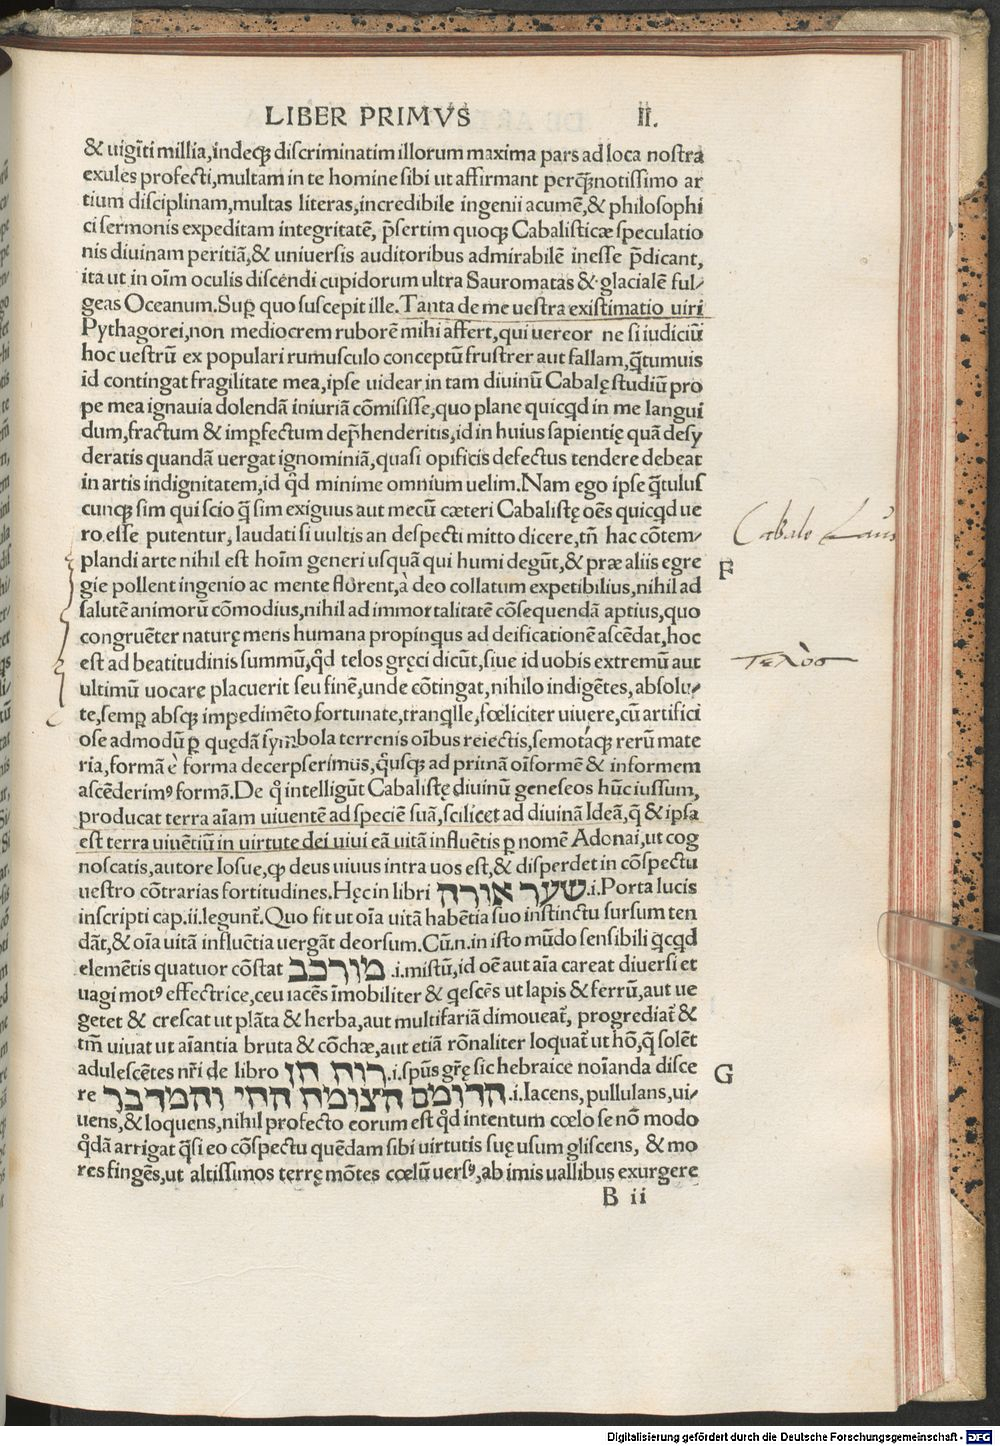 LIBER PRIMVS II.
& uigīti millia, indeqȝ discriminatim illorum maxima pars ad loca nostra
exules profecti, multam in te homine sibi ut affirmant perq̄ȝnotissimo ar
tium disciplinam, multas literas, incredibile ingenii acumē, & philosophi
ci sermonis expeditam integritatē, p̄sertim quoqȝ Cabalisticæ speculatio
nis diuinam peritiā, & uniuersis auditoribus admirabilē inesse p̄dicant,
ita ut in oīm oculis discendi cupidorum ultra Sauromatas & glacialē ful⸗
geas Oceanum. Suꝑ quo suscepit ille. Tanta de me uestra existimatio uiri
Pythagorei, non mediocrem ruborē mihi affert, qui uereor ne si iudiciū
hoc uestrū ex populari rumusculo conceptū frustrer aut fallam, q̄tumuis
id contingat fragilitate mea, ipse uidear in tam diuinū Cabalę studiū pro
pe mea ignauia dolendā iniuriā cōmisisse, quo plane quicqd in me langui
dum, fractum & imꝑfectum dep̄henderitis, id in huius sapientię quā desy
deratis quandā uergat ignominiā, quasi opificis defectus tendere debeat
in artis indignitatem, id qd̄ minime omnium uelim. Nam ego ipse q̄tulus
cunqȝ sim qui scio q̄ sim exiguus aut mecū cæteri Cabalistę oēs quicqd ue
ro esse putentur, laudati si uultis an despecti mitto dicere, tn̄ hac cōtem⸗
plandi arte nihil est hoīm generi usquā qui humi degūt, & præ aliis egre
gie pollent ingenio ac mente florent, à deo collatum expetibilius, nihil ad
salutē animorū cōmodius, nihil ad immortalitatē cōsequendā aptius, quo
congruēter naturę mens humana propinqus ad deificationē ascēdat, hoc
est ad beatitudinis summū, qd̄ telos gręci dicūt, siue id uobis extremū aut
ultimū uocare placuerit seu finē, unde cōtingat, nihilo indigētes, absolu⸗
te, semꝑ absqȝ impedimēto fortunate, tranqlle, fœliciter uiuere, cū artifici
ose admodū ꝑ quędā symbola terrenis oībus reiectis, semotáqȝ rerū mate
ria, formā è forma decerpserimus, qusqȝ ad primā oīsormē & informem
ascēderimꝰ formā. De q̄ intelligūt Cabalistę diuinū geneseos hūc iussum,
producat terra aīam uiuentē ad speciē suā, scilicet ad diuinā Ideā, q̄ & ipsa
est terra uiuētiū in uirtute dei uiui eā uitā influētis ꝑ nomē Adonai, ut cog
noscatis, autore Iosue, qꝫ deus uiuus intra uos est, & disperdet in cōspectu
uestro cōtrarias fortitudines. Hęc in libri שער אורה .i. Porta lucis
inscripti cap. ii. legunt̄. Quo fit ut oīa uitā habētia suo instinctu sursum ten
dāt, & oīa uitā influētia uergāt deorsum. Cū .n. in isto mūdo sensibili qcqd
elemētis quatuor cōstat מורכב .i. mistū, id oē aut aīa careat diuersi et
uagi motꝰ effectrice, ceu iacēs īmobiliter & qescēs ut lapis & ferrū, aut ue
getet & crescat ut plāta & herba, aut multifariā dimoueat̄, progrediat̄ &
tm̄ uiuat ut aīantia bruta & cōchæ, aut etiā rōnaliter loquat̄ ut hō, q̄ solēt
adulescētes nr̄i de libro רוח חן .i. spūs gr̄ę sic hebraice noīanda disce
re הדומם הצומח החי והמדבר .i. Iacens, pullulans, ui⸗
uens, & loquens, nihil profecto eorum est qd̄ intentum cœlo se nō modo
qd̄ā arrigat q̄si eo cōspectu quēdam sibi uirtutis suę usum gliscens, & mo
res fingēs, ut altissimos terrę mōtes cœlū uersꝰ, ab imis uallibus exurgere
B ii
Cabalę Laus
F
τελοσ
G
Digitalisierung gefördert durch die Deutsche Forschungsgemeinschaft - DFG